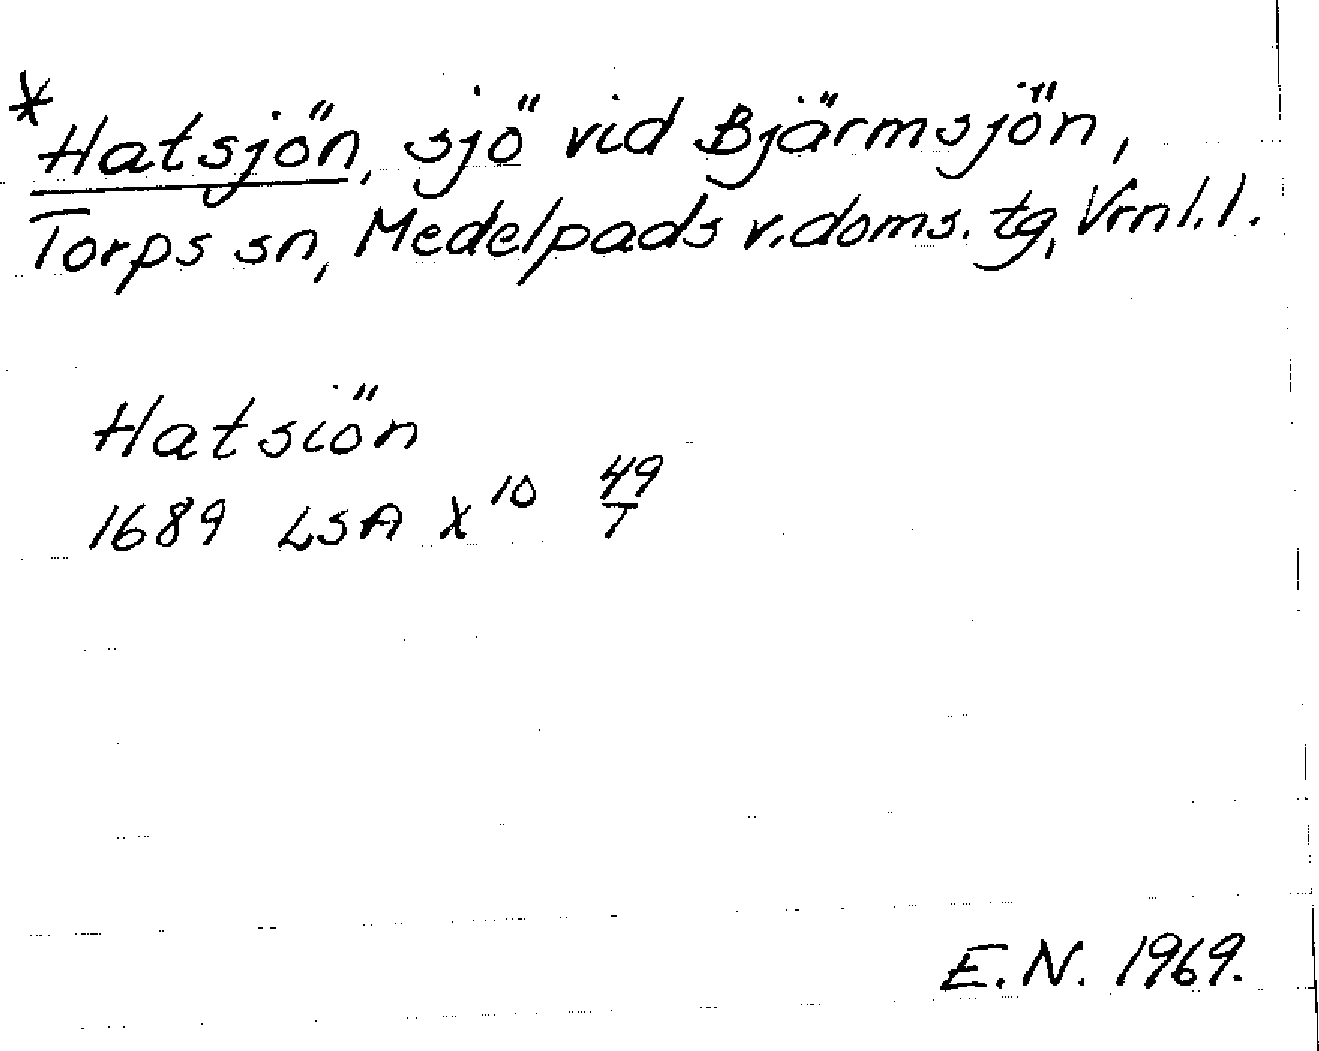 *Hatsjön, sjö vid Bjärmsjön,
Torps sn, Medelpads v. doms. tg, Vrnl. l.
Hatsiön
1689 LSA X¹⁰ 49/1
E.N. 1969.